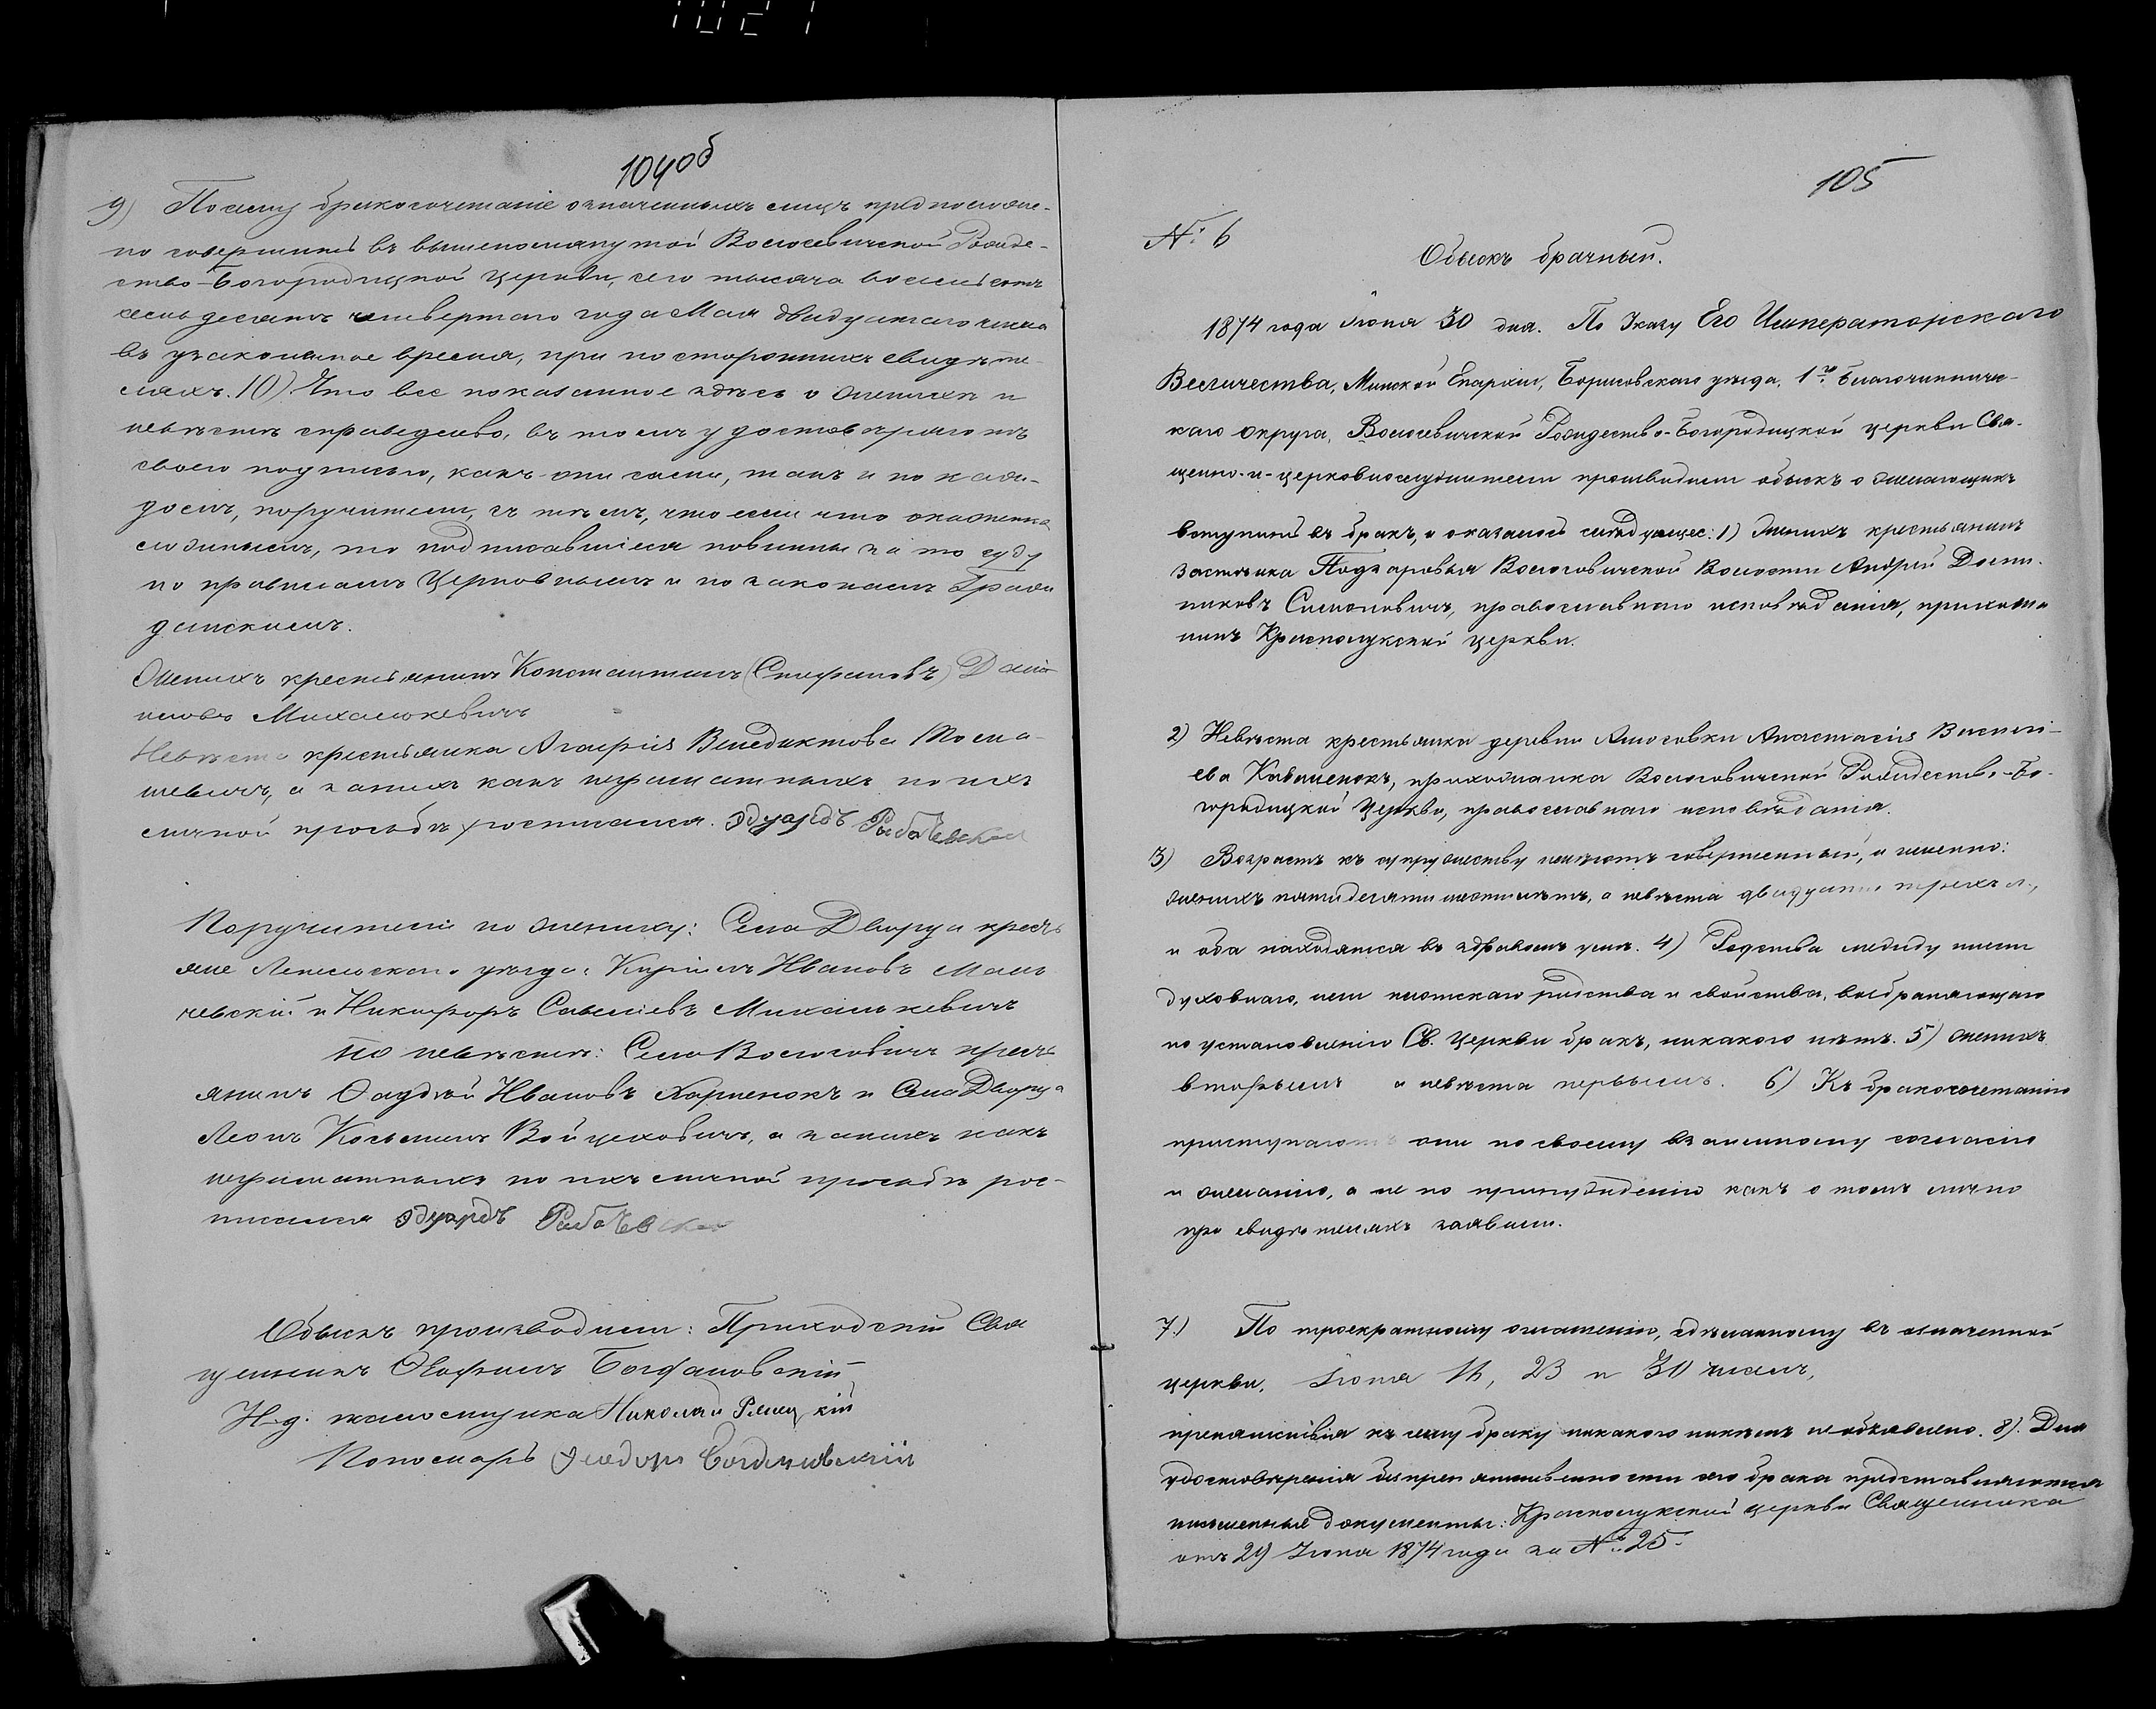 104об
9) Почему бракосочетаніе означенныхъ лицъ предположе-
но совершить въ вышепомянутой Волосевичской Рожде-
ство-Богородицкой Церкви, сего тысяча восемьсотъ
семьдесятъ четвертаго года Мая двадцатаго числа
въ узаконенное время, при постороннихъ свидѣте-
ляхъ. 10) Что все показанное здѣсь о женихѣ и
невѣстѣ справедливо, въ томъ удостовѣряютъ
своею подписью, какъ они сами, такъ и по каж-
домъ, поручители, съ тѣмъ, что если что окажется
ложнымъ, то подписавшіеся повинны за то суду
по правиламъ Церковнымъ и по законамъ Граж-
данскимъ.
Женихъ крестьянинъ Константинъ (Стефановъ) Дани-
иловъ Михалькевичъ
Невѣста крестьянка Агафія Венедиктова
а за нихъ какъ неграматныхъ по ихъ
личной прозьбѣ росписался. Эдуардъ
Поручители по жениху: Села Дворца кресть
яне Лепельскаго уѣзда: Кириллъ Ивановъ
и Никифоръ Савельевъ Михалькевичъ
по невѣстѣ: Села Волосовичъ крест
янинъ Фаддѣй Ивановъ Харченокъ и Села Дворца
Леонъ Косьминъ Войцеховичъ, а за нихъ какъ
неграматныхъ по ихъ личной прозьбѣ рос-
писался Эдуардъ
Обыскъ производили: Приходскій Свя
щенникъ Евфимъ Богдановскій
И. д. псаломщика Николай
Пономарь Ѳеодоръ Богдановскій
105
№ 6
Обыскъ брачный.
1874 года Іюня 30 дня. По Указу Его Императорскаго
Величества, Минской Епархіи, Борисовскаго уѣзда, 1го Благочинниче-
скаго округа, Волосевичской Рождество-Богородицкой церкви Свя-
щенно-и-церковнослужители производили обыскъ о желающихъ
вступить въ бракъ, и оказалось слѣдующее: 1) Женихъ крестьянинъ
застѣнка Волосовичской Волости Андрей
Симоновичъ, православнаго исповѣданія, прихожа
нинъ Краснолукской церкви.
2) Невѣста крестьянка деревни Амосовки Анастасія Василь-
ева прихожанка Волосовичской Рождество-Бо-
городицкой Церкви, православнаго исповѣданія.
3) Возрастъ къ супружеству имѣютъ совершенный, а именно:
женихъ пятидесяти шести лѣтъ, а невѣста двадцати трехъ л.,
и оба находятся въ здравомъ умѣ. 4) Родства между ними
духовнаго, или плотскаго родства и свойства, возбраняющаго
по установленію Св. Церкви бракъ, никакого нѣтъ. 5) Женихъ
вторымъ а невѣста первымъ. 6) Къ бракосочетанію
приступаютъ они по своему взаимному согласію
и желанію, а не по принужденію какъ о томъ лично
при свидѣтеляхъ заявили.
7.) По троекратному оглашенію, сдѣланному въ означенной
церкви, Іюня 16, 23 и 30 числъ,
препятствія къ сему браку никакого никѣмъ не объявлено. 8). Для
удостовѣренія безпрепятственности сего брака представляются
письменные документы: Краснолукской церкви Священника
отъ 29 Іюня 1874 года за № 25.